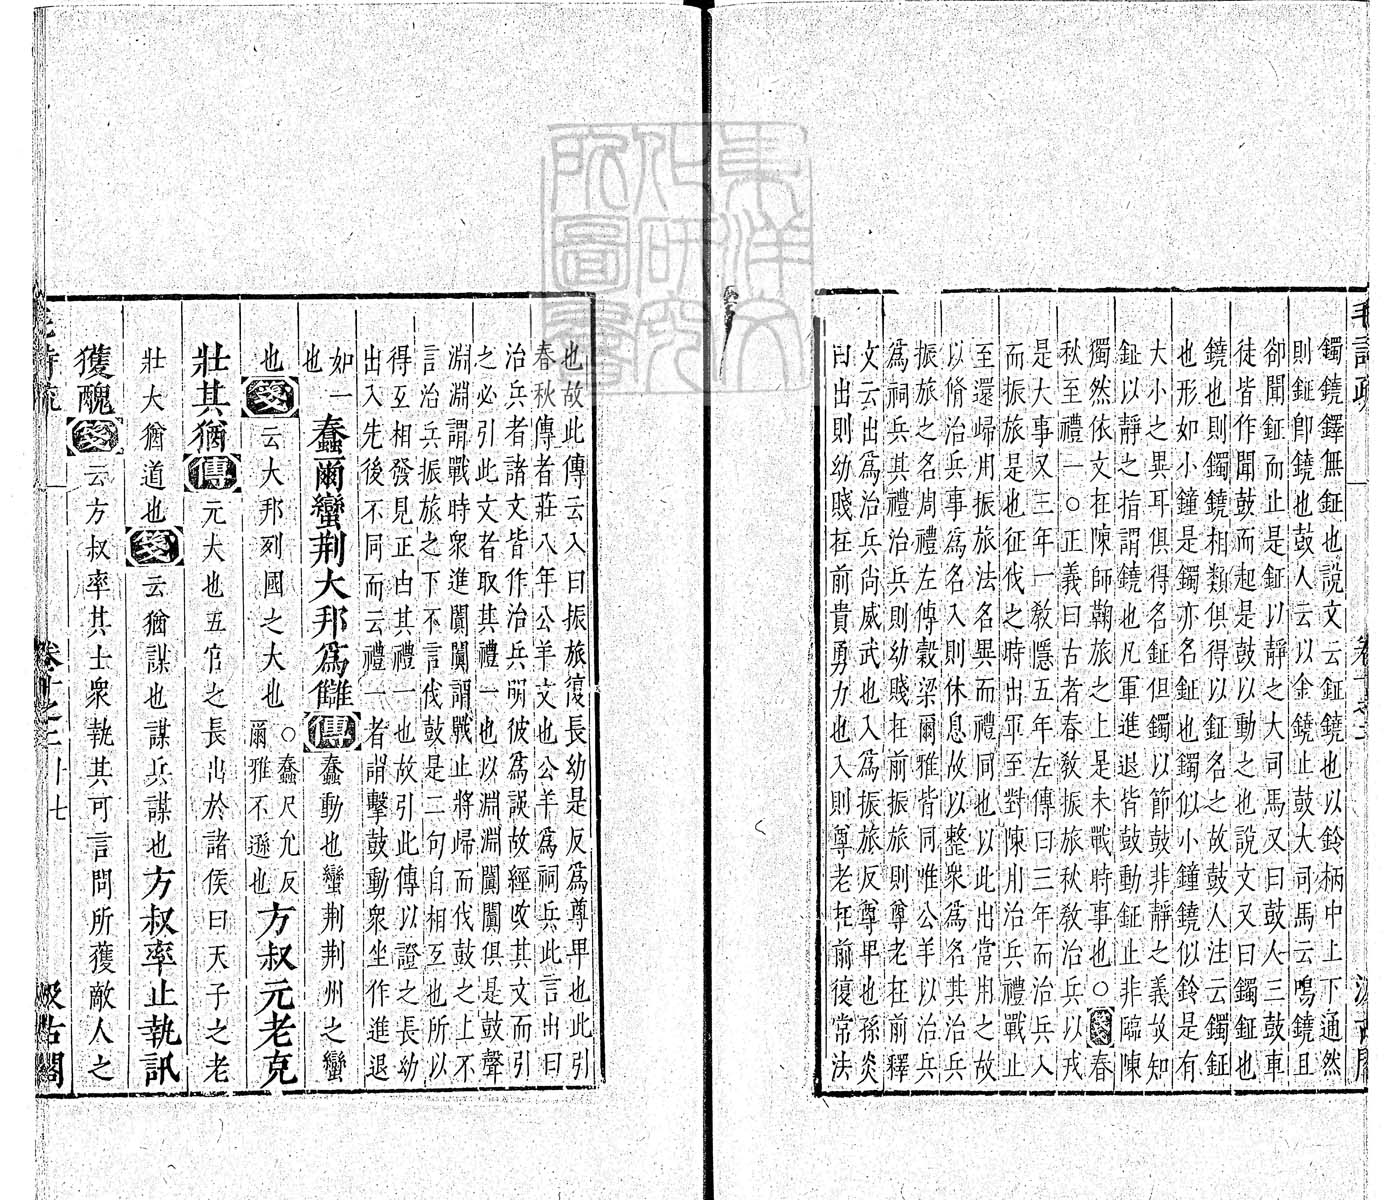 鐲鐃鐸無鉦也說文云鉦鐃也以鈴柄中上下通然
則鉦卽鐃也鼓人云以金鐃止鼓大司馬云鳴鐃且
卻聞鉦而止是鉦以靜之大司馬又曰鼓人三鼓車
徒皆作聞鼓而起是鼓以動之也說文又曰鐲鉦也
鐃也則鐲鐃相類俱得以鉦名之故鼓人注云鐲鉦
也形如小鐘是鐲亦名鉦也鐲似小鐘鐃似鈴是有
大小之異耳俱得名鉦但鐲以節鼓非靜之義故知
鉦以靜之指謂鐃也凡軍進退皆鼓動鉦止非臨陳
獨然依文在陳師鞠旅之上是未戰時事也○箋春
秋至禮一○正義曰古者春敎振旅秋敎治兵以戎
是大事又三年一敎隱五年左傳曰三年而治兵入
而振旅是也征伐之時出軍至對陳用治兵禮戰止
至還歸用振旅法名異而禮同也以此出當用之故
以脩治兵事爲名入則休息故以整衆爲名其治兵
振旅之名周禮左傳穀梁爾雅皆同唯公羊以治兵
爲祠兵其禮治兵則幼賤在前振旅則尊老在前釋
文云出爲治兵尚威武也入爲振旅反尊卑也孫炎
曰出則幼賤在前貴勇力也入則尊老在前復常法
也故此傳云入曰振旅復長幼是反爲尊卑也此引
春秋傳者莊八年公羊文也公羊爲祠兵此言出曰
治兵者諸文皆作治兵明彼爲誤故經改其文而引
之必引此文者取其禮一也以淵淵闐闐俱是鼓聲
淵淵謂戰時衆進闐闐謂戰止將歸而伐鼓之上不
言治兵振旅之下不言伐鼓是二句自相互也所以
得互相發見正由其禮一也故引此傳以證之長幼
出入先後不同而云禮一者謂擊鼓動衆坐作進退
如一也蠢爾蠻荆大邦爲讎傳蠢動也蠻荆荆州之蠻
也箋云大邦列國之大也○蠢尺允反爾雅不遜也方叔元老克
壯其猶傳元大也五官之長出於諸侯曰天子之老
壯大猶道也箋云猶謀也謀兵謀也方叔率止執訊
獲醜箋云方叔率其士衆執其可言問所獲敵人之
毛詩疏 卷十之二 十七 汲古閣